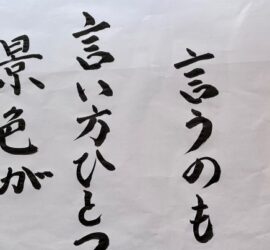 言うのも
言い方ひとつ
景色が